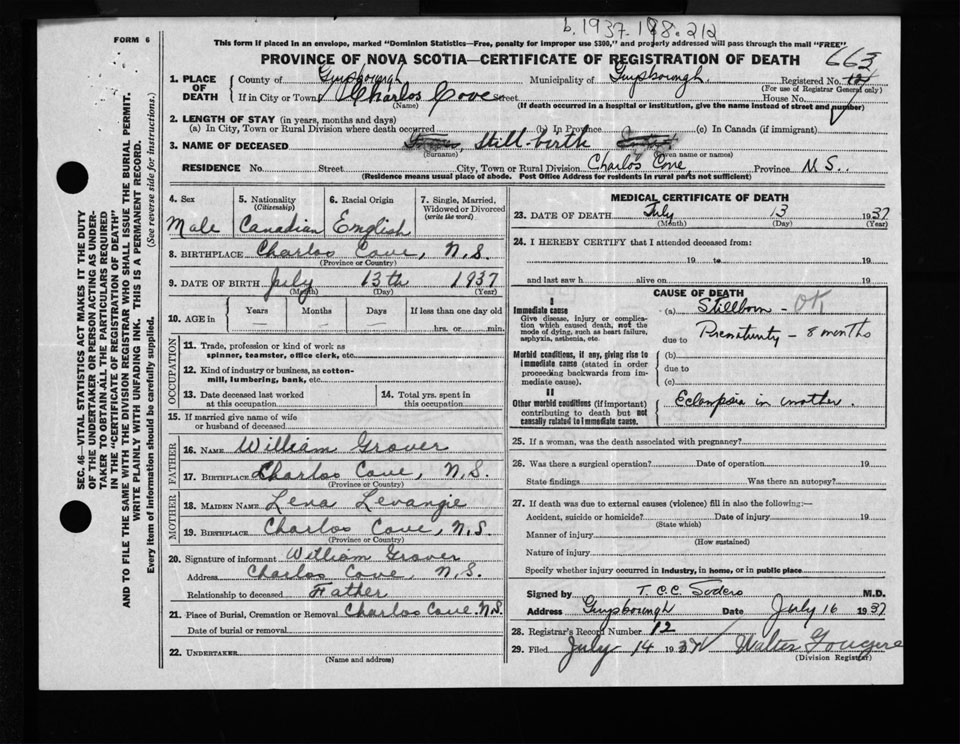 b. 1937.198.212
FORM 6
This form if placed in an envelope, marked "Dominion Statistics—Free, penalty for improper use $300," and properly addressed will pass through the mail "FREE"
PROVINCE OF NOVA SCOTIA—CERTIFICATE OF REGISTRATION OF DEATH
663
1. PLACE OF DEATH
County of Guysborough Municipality of Guysborough Registered No.
(For use of Registrar General only)
If in City or Town Charlos Cove Street House No.
(Name) (If death occurred in a hospital or institution, give the name instead of street and number)
2. LENGTH OF STAY (in years, months and days)
(a) In City, Town or Rural Division where death occurred (b) In Province (c) In Canada (if immigrant)
3. NAME OF DECEASED Still-birth
(Surname) (Given name or names)
RESIDENCE No. Street City, Town or Rural Division Charlos Cove Province N S.
(Residence means usual place of abode. Post Office Address for residents in rural parts not sufficient)
4. Sex Male
5. Nationality (Citizenship) Canadian
6. Racial Origin English
7. Single, Married, Widowed or Divorced (write the word)
8. BIRTHPLACE Charlos Cove, N.S.
(Province or Country)
9. DATE OF BIRTH July 13th 1937
(Month) (Day) (Year)
10. AGE in Years Months Days If less than one day old
— — — hrs. or min.
OCCUPATION
11. Trade, profession or kind of work as spinner, teamster, office clerk, etc.
12. Kind of industry or business, as cotton-mill, lumbering, bank, etc.
13. Date deceased last worked at this occupation
14. Total yrs. spent in this occupation
15. If married give name of wife or husband of deceased
FATHER
16. NAME William Grover
17. BIRTHPLACE Charlos Cove, N.S.
(Province or Country)
MOTHER
18. MAIDEN NAME Lena Levangie
19. BIRTHPLACE Charlos Cove, N.S.
(Province or Country)
20. Signature of informant William Grover
Address Charlos Cove, N.S.
Relationship to deceased Father
21. Place of Burial, Cremation or Removal Charlos Cove N.S.
Date of burial or removal
22. UNDERTAKER
(Name and address)
MEDICAL CERTIFICATE OF DEATH
23. DATE OF DEATH July 13 1937
(Month) (Day) (Year)
24. I HEREBY CERTIFY that I attended deceased from:
19 to 19
and last saw h alive on 19
CAUSE OF DEATH
I
Immediate cause
Give disease, injury or complication which caused death, not the mode of dying, such as heart failure, asphyxia, asthenia, etc.
(a) Stillborn - OK
due to Prematurity - 8 months
Morbid conditions, if any, giving rise to immediate cause (stated in order proceeding backwards from immediate cause).
(b)
due to
(c)
II
Other morbid conditions (if important) contributing to death but not causally related to immediate cause.
Eclampsia in mother.
25. If a woman, was the death associated with pregnancy?
26. Was there a surgical operation? Date of operation 19
State findings Was there an autopsy?
27. If death was due to external causes (violence) fill in also the following:—
Accident, suicide or homicide? Date of injury 19
(State which)
Manner of injury
(How sustained)
Nature of injury
Specify whether injury occurred in industry, in home, or in public place
Signed by T. C. C. Sodero M.D.
Address Guysborough Date July 16 1937
28. Registrar's Record Number 12
29. Filed July 14 1937 Walter Fougere
(Division Registrar)
SEC. 46—VITAL STATISTICS ACT MAKES IT THE DUTY
OF THE UNDERTAKER OR PERSON ACTING AS UNDERTAKER TO OBTAIN ALL THE PARTICULARS REQUIRED
IN THE "CERTIFICATE OF REGISTRATION OF DEATH"
AND TO FILE THE SAME WITH THE DIVISION REGISTRAR WHO SHALL ISSUE THE BURIAL PERMIT.
WRITE PLAINLY WITH UNFADING INK. THIS IS A PERMANENT RECORD.
Every item of information should be carefully supplied. (See reverse side for instructions.)